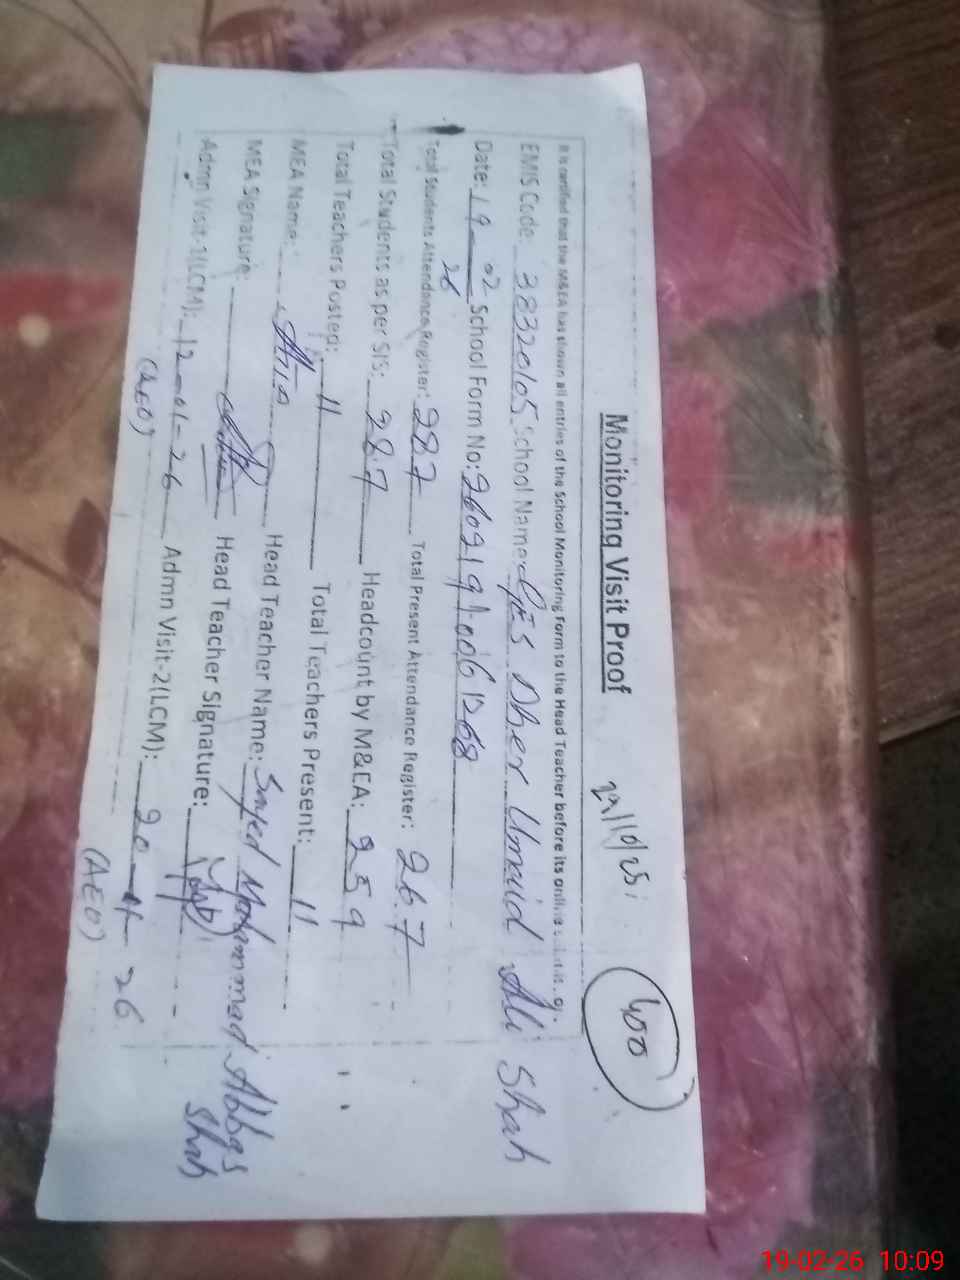 Monitoring Visit Proof
29/10/25
400
It is certified that the M&EA has shown all entries of the School Monitoring Form to the Head Teacher before its online
EMIS Code: 38320105 School Name: Dher Umaid Ali Shah
Date: 19-02-26 School Form No: 26021910061268
Total Students Attendance Register: 287 Total Present Attendance Register: 267
Total Students as per SIS: 287 Headcount by M&EA: 259
Total Teachers Posted: 11 Total Teachers Present: 11
MEA Name: Head Teacher Name: Sayed Mohammad Abbas Shah
MEA Signature: Head Teacher Signature:
Admn Visit-1(LCM): 12-01-26 Admn Visit-2(LCM): 20-01-26
(AEO) (AEO)
19-02-26 10:09